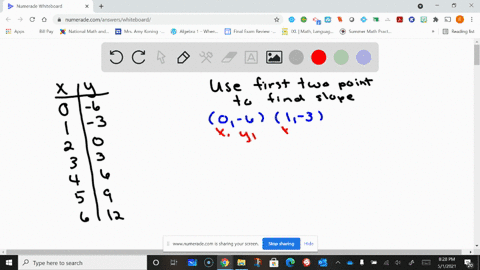 Numerade Whiteboard
numerade.com/answers/whiteboard/
Apps
Bill Pay
National Math and
Mrs. Amy Koenig
Algebra 1 - Wheen
Final Exam Review
IXL | Math, Language
Summer Math Pract
Reading list
Use first two point
to find slope
x y
0 -6
1 -3
2 0
3 3
4 6
5 9
6 12
(0,-6) (1,-3)
x, y, x
www.numerade.com is sharing your screen.
Stop sharing
Hide
Type here to search
8:20 PM
5/1/2021